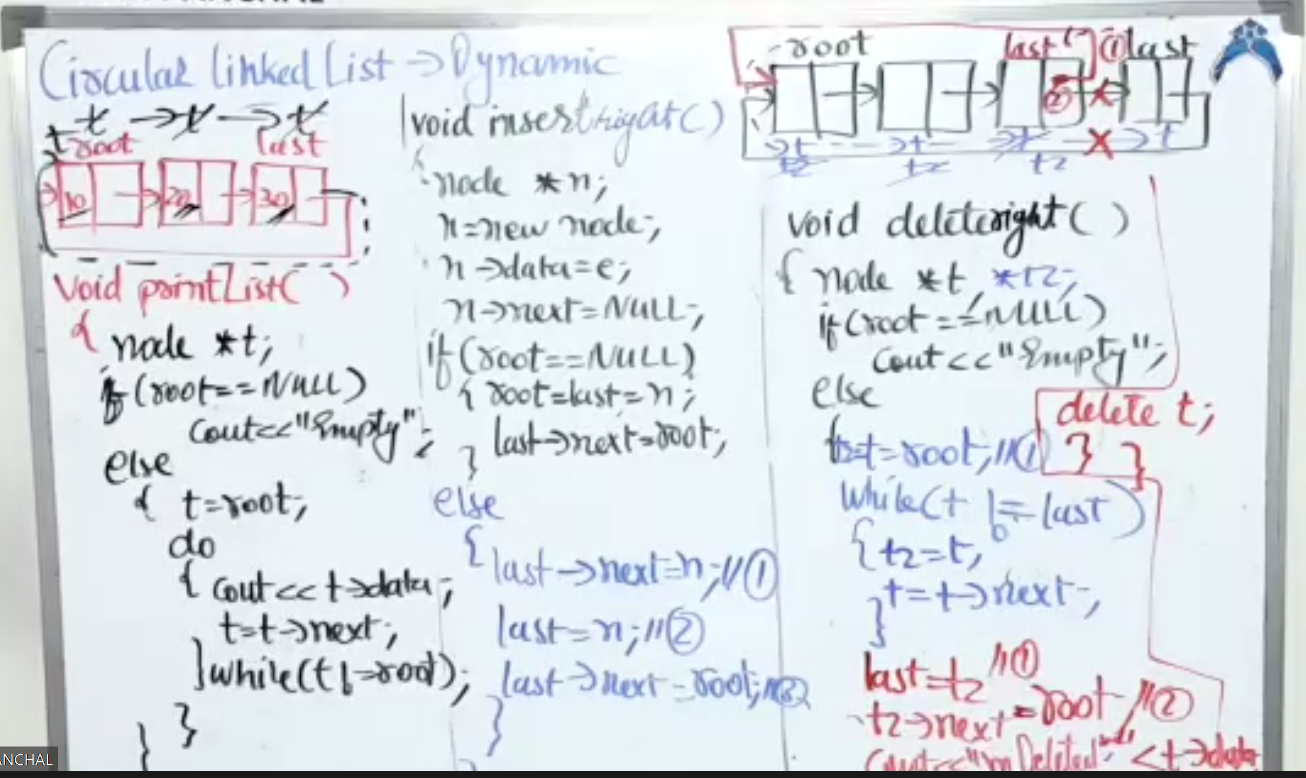 Circular linked List → Dynamic
t → t → t
t root last
10 20 30
void printList( )
{ node *t;
if (root==NULL)
cout<<"Empty";
else
{ t=root;
do
{ cout<<t->data;
t=t->next;
}while(t!=root);
}
}
void insertright( )
{
node *n;
n=new node;
n->data=e;
n->next=NULL;
if(root==NULL)
{ root=last=n;
last->next=root;
}
else
{last->next=n;//①
last=n;//②
last->next=root;//③
}
root last ① last
②
t t t t
t2 t2 t2
void deleteright( )
{ node *t, *t2;
if(root==NULL)
cout<<"Empty";
else
{t2=t=root;//①
while(t != last)
{t2=t;
t=t->next;
}
last=t2 //①
t2->next=root //②
cout<<"\n Deleted" < t->data
delete t;
} }
ANCHAL